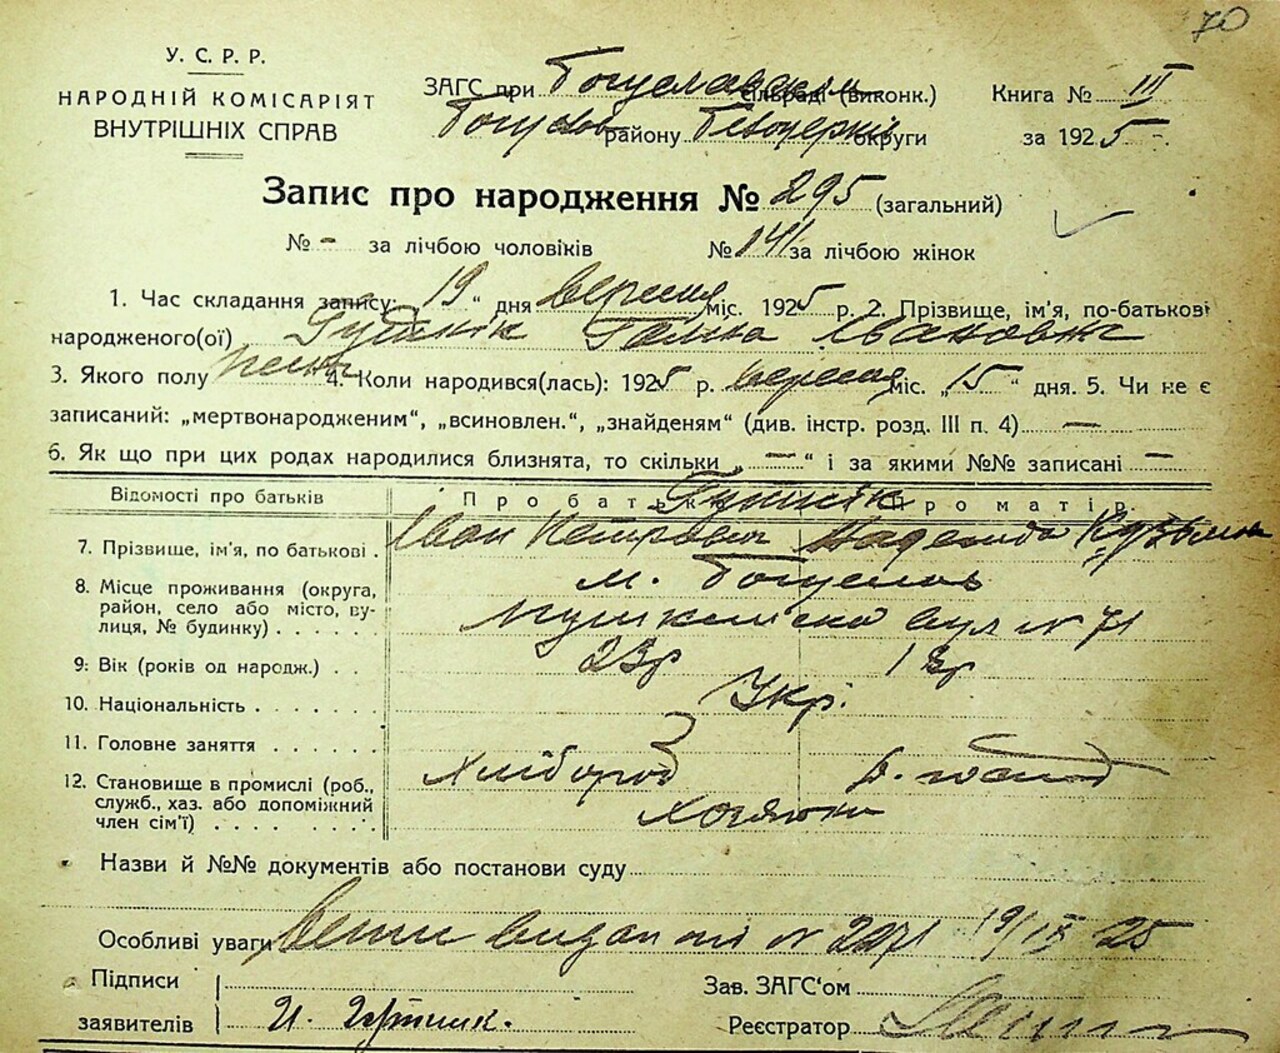 70
У. С. Р. Р.
НАРОДНІЙ КОМІСАРІЯТ
ВНУТРІШНІХ СПРАВ
ЗАГС при Богуславськім сільраді (виконк.)
Богуслов району Білоцерків округи
Книга № III
за 1925
Запис про народження № 295 (загальний)
№ – за лічбою чоловіків № 141 за лічбою жінок
1. Час складання запису: 19 “ дня вересня міс. 1925 р. 2. Прізвище, ім'я, по-батькові
народженого(ої) Галина Івановна
3. Якого полу жін 4. Коли народився(лась): 1925 р. вересня міс. „15“ дня. 5. Чи не є
записаний: „мертвонародженим“, „всиновлен.“, „знайденям“ (див. інстр. розд. III п. 4) —
6. Як що при цих родах народилися близнята, то скільки „—“ і за якими №№ записані —
Відомості про батьків Про батька Про матір
7. Прізвище, ім'я, по батькові . Іван Петрович Надежда
8. Місце проживання (округа, район, село або місто, вулиця, № будинку) . . . . . . м. Богуслов
вул № 71
9. Вік (років од народж.) . . 23р
10. Національність . . . . . . Укр.
11. Головне заняття . . . . . .
12. Становище в промислі (роб., служб., хаз. або допоміжний член сім'ї) . . . . . . . Хлібороб
Назви й №№ документів або постанови суду
Особливі уваги № 2271 19/IX 25
Підписи
заявителів И.
Зав. ЗАГС'ом
Реєстратор